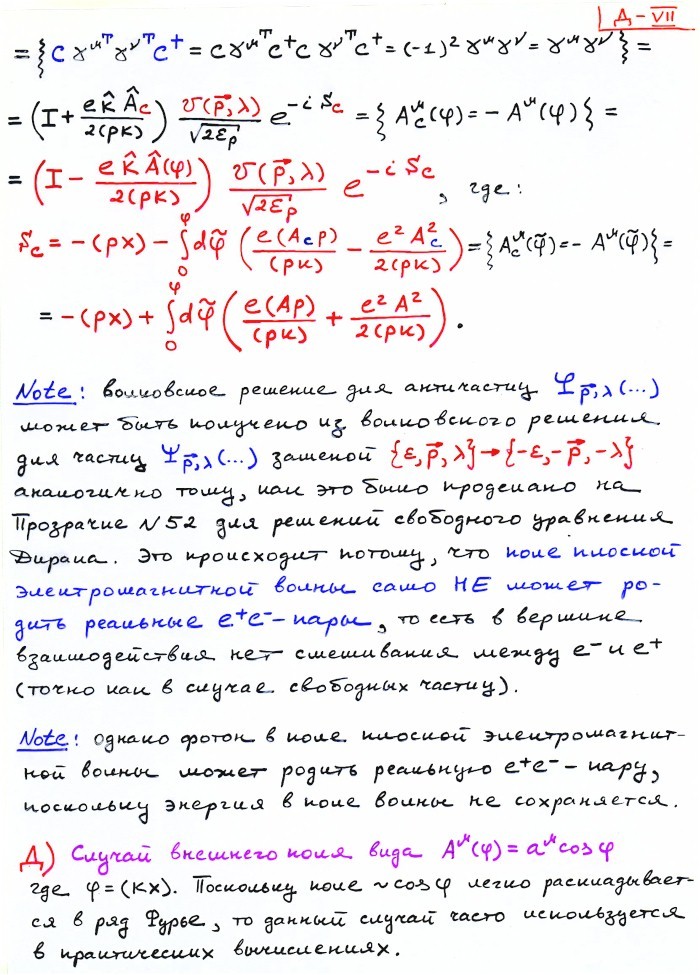 Д-VII
= {C γ^{μT} γ^{νT} C^+ = C γ^{μT} C^+ C γ^{νT} C^+ = (-1)^2 γ^μ γ^ν = γ^μ γ^ν} =
= (I + e k̂ Â_c / 2(pk)) v(p⃗, λ)/√(2ε_p) e^{-i S_c} = {A_c^μ(φ) = - A^μ(φ)} =
= (I - e k̂ Â(φ) / 2(pk)) v(p⃗, λ)/√(2ε_p) e^{-i S_c}, где:
S_c = -(px) - ∫_0^φ dφ̃ (e(A_c p)/(pk) - e^2 A_c^2/2(pk)) = {A_c^μ(φ̃) = - A^μ(φ̃)} =
= -(px) + ∫_0^φ dφ̃ (e(Ap)/(pk) + e^2 A^2/2(pk)).
Note: волковское решение для античастиц Ψ_{p⃗,λ}(...)
может быть получено из волковского решения
для частиц Ψ_{p⃗,λ}(...) заменой {ε, p⃗, λ} → {-ε, -p⃗, -λ}
аналогично тому, как это было проделано на
Прозрачке N 52 для решений свободного уравнения
Дирака. Это происходит потому, что поле плоской
электромагнитной волны само НЕ может ро-
дить реальные e^+e^- - пары, то есть в вершине
взаимодействия нет смешивания между e^- и e^+
(точно как в случае свободных частиц).
Note: однако фотон в поле плоской электромагнит-
ной волны может родить реальную e^+e^- - пару,
поскольку энергия в поле волны не сохраняется.
Д) Случай внешнего поля вида A^μ(φ) = a^μ cos φ
где φ = (kx). Поскольку поле ~ cos φ легко раскладывает-
ся в ряд Фурье, то данный случай часто используется
в практических вычислениях.